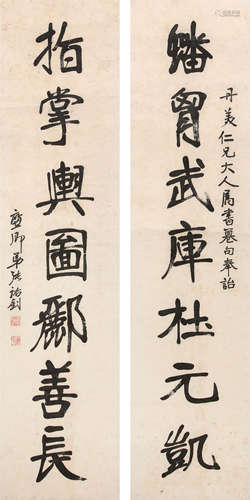 丹美仁兄大人屬書句奉詒
蟠胷武庫杜元凱
指掌輿圖酈善長
廉卿弟張裕釗